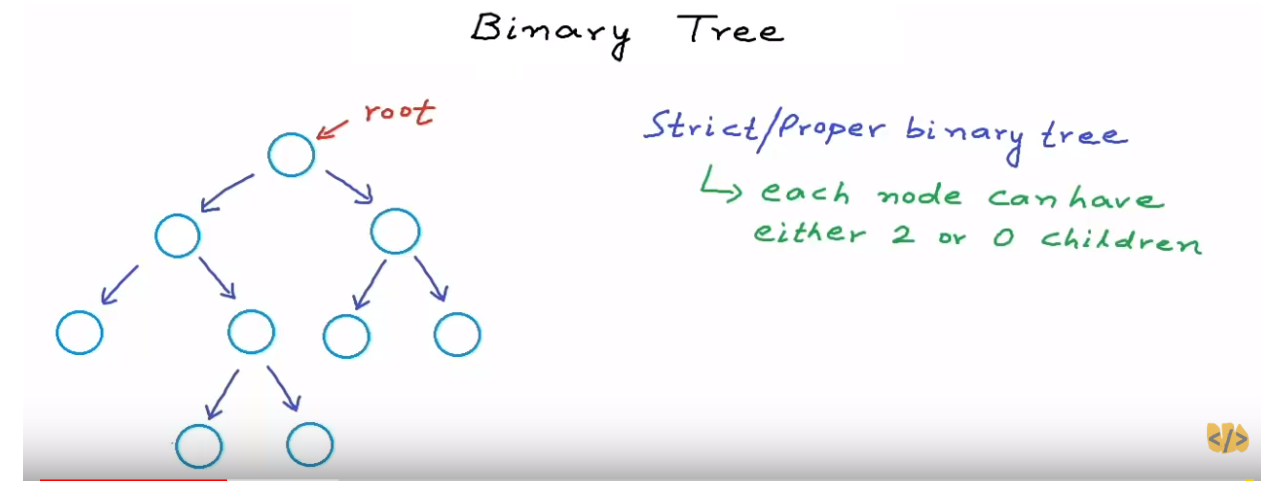 Binary Tree
root
Strict/Proper binary tree
each node can have
either 2 or 0 children
</>